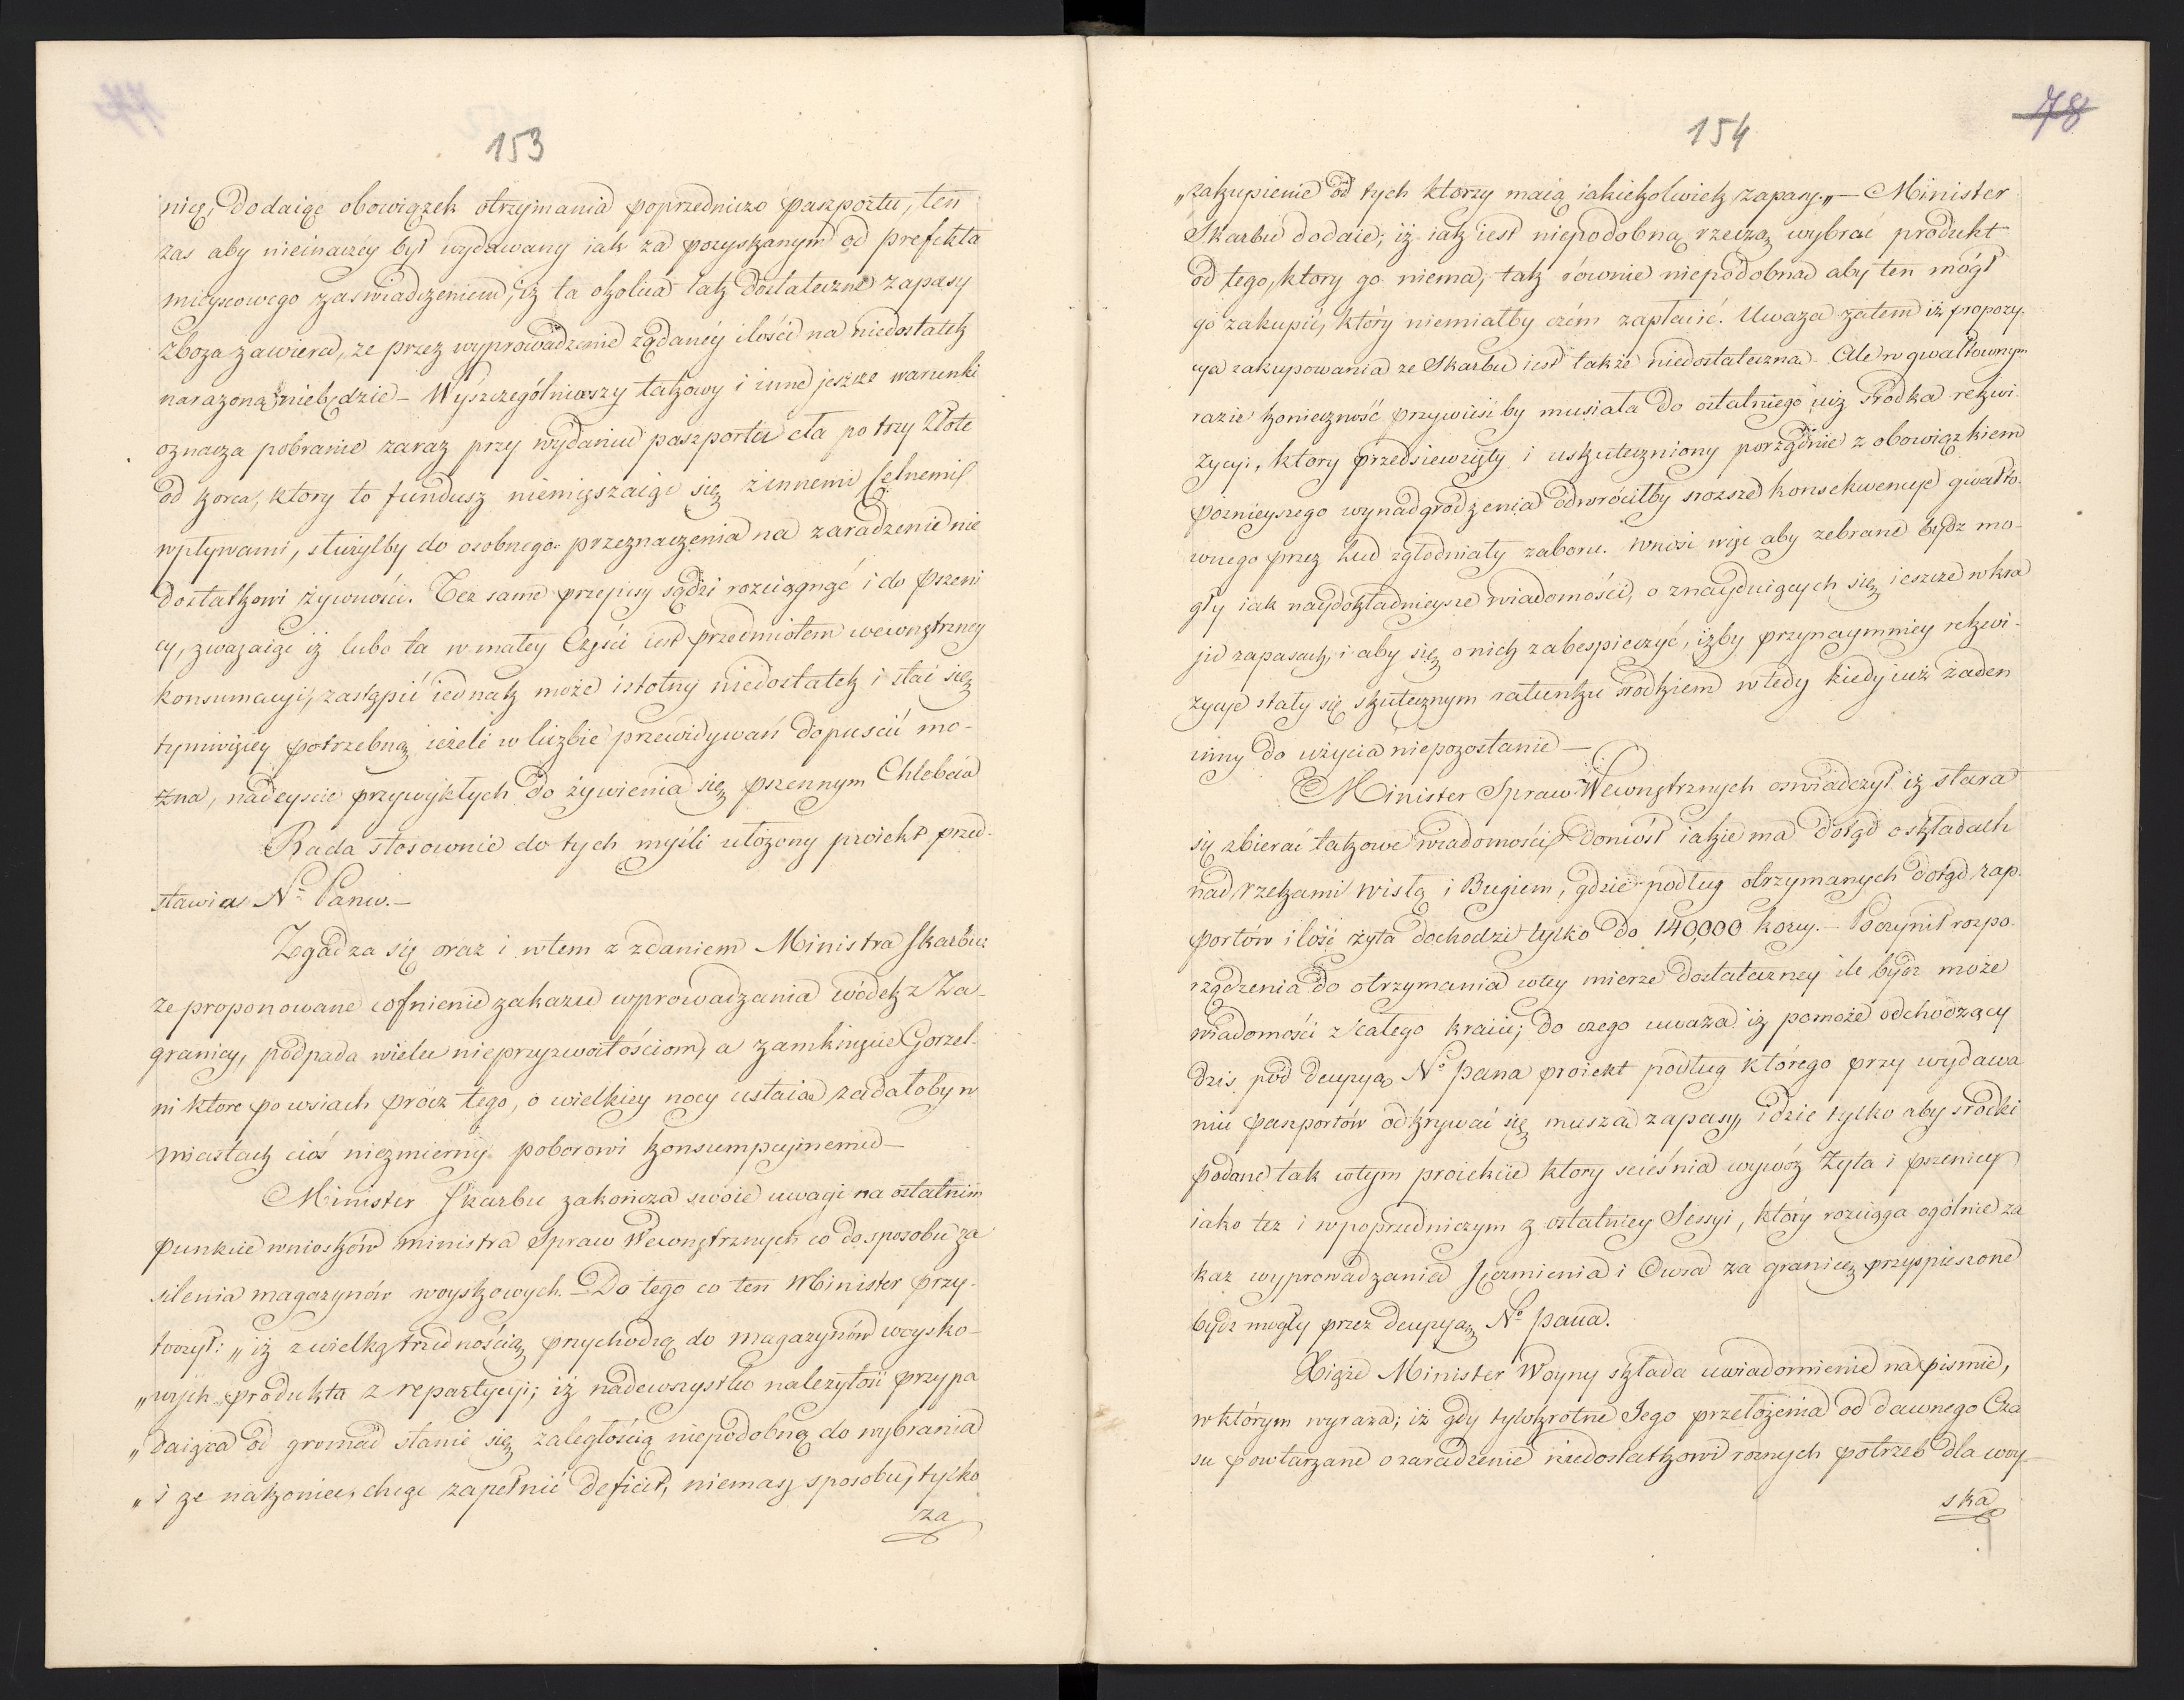 153
nię, dodaiąc obowiązek otrzymania poprzedniczo paszportu, ten
zas aby nieinaczéy był wydawany iak za pozyskanym od prefekta
mieyscowego zaświadczeniem, iż ta okolica tak dostateczne zapasy
zboza zawiera, ze przez wyprowadzenie ządanéy ilości na niedostatek
narazoną niebędzie – Wyszczególniwszy takowy i inne jeszcze warunki
oznacza pobranie zaraz przy wydaniu paszportu cła po trzy Złote
od korca, ktory to fundusz niemięszaiąc się z innemi Celnemi
wpływami, służyłby do osobnego przeznaczenia na zaradzenie nie
dostatkowi żywności. Tez same przepisy sądzi rozciągnąć i do pszeni
cy, zwazaiąc iż lubo ta w małey Części iest przedmiotem wewnętrzney
konsumacyi, zastąpić iednak może istotny niedostatek i stać się
tymwięcey potrzebną iezeli w liczbie przewidywań dopuścić mo-
żna, nadeyście przywykłych do żywienia się pszennym Chlebem
Rada stosownie do tych myśli ułożony proiekt przed-
stawia N: Panu. –
Zgadza się oraz i wtem z zdaniem Ministra Skarbu
ze proponowane cofnienie zakazu wprowadzania wódek z Za-
granicy, podpada wielu nieprzyzwoitościom, a zamknięcie Gorzel-
ni ktore po wsiach prócz tego, o wielkiey nocy ustaią zadałoby w
miastach cios niezmierny poborowi konsumpcyjnemu –
Minister Skarbu zakończa swoie uwagi na ostatnim
punkcie wniosków Ministra Spraw Wewnętrznych co do sposobu za
silenia magazynów woyskowych. – Do tego co ten Minister przy-
toczył: „iż z wielką trudnością przychodzą do magazynów woysko-
„wych produkta z repartycyi; iż nadewszystko nalezytość przypa
„daiąca od gromad stanie się zaległością niepodobną do wybrania
„i ze nakoniec, chcąc zapełnić deficit, niemasz sposobu, tylko
za
154
78
„zakupienie od tych ktorzy maią iakiekolwiek zapasy.„ – Minister
Skarbu dodaie; iż iak iest niepodobną rzeczą wybrać produkt
od tego, ktory go niema, tak równie niepodobna aby ten mógł
go zakupić, który niemiałby czém zapłacić. Uwaza zatem iż propozy-
cya zakupowania ze Skarbu iest także niedostateczna. – Ale w gwałtownym
razie konieczność przywieść by musiała do ostatniego iuż srodka rekwi-
zycyi, ktory przedsiewzięty i uskuteczniony porządnie z obowiązkiem
poznieyszego wynadgrodzenia odwróciłby srozsze konsekwencye gwałto-
wnego przez lud zgłodniały zaboru. Wnosi więc aby zebrane bydz mo-
gły iak naydokładnieysze wiadomości, o znayduiących się ieszcze w kra
ju zapasach, i aby się o nich zabespieczyć, iżby przynaymniey rekwi-
zycye stały się skutecznym ratunku srodkiem wtedy kiedy iuż żaden
inny do użycia niepozostanie –
Minister Spraw Wewnętrznych oswiadczył iż stara
się zbierać takowe wiadomości, Doniósł iakie ma dotąd o składach
nad rzekami Wisłą i Bugiem, gdzie podług otrzymanych dotąd rap-
portów ilość żyta dochodzi tylko do 140,000 korcy. – Poczynił rozpo
rządzenia do otrzymania wtey mierze dostateczney ile bydz może
wiadomości z całego kraiu; do czego uważa iż pomoże odchodzący
dzis pod decyzyą N° Pana proiekt podług którego przy wydawa
niu paszportów odkrywać się muszą zapasy, idzie tylko aby srodki
podane tak wtym proiekcie ktory ścieśnia wywóz Żyta i pszenicy
iako tez i w poprzedniczym z ostatniey Sessyi, który rozciąga ogólnie za
kaz wyprowadzania Jęczmienia i Owsa za granicę przyspieszone
bydz mogły przez decyzyą N° Pana.
Xiąże Minister Woyny składa uwiadomienie na pismie,
w którym wyraża; iż gdy tylokrotne Jego przełożenia od dawnego Cza
su powtarzane o zaradzenie niedostatkowi roznych potrzeb dla woy-
ska